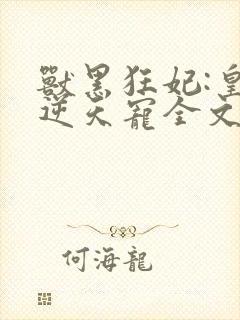 獸黑狂妃:皇
逆天寵全文
何海龍